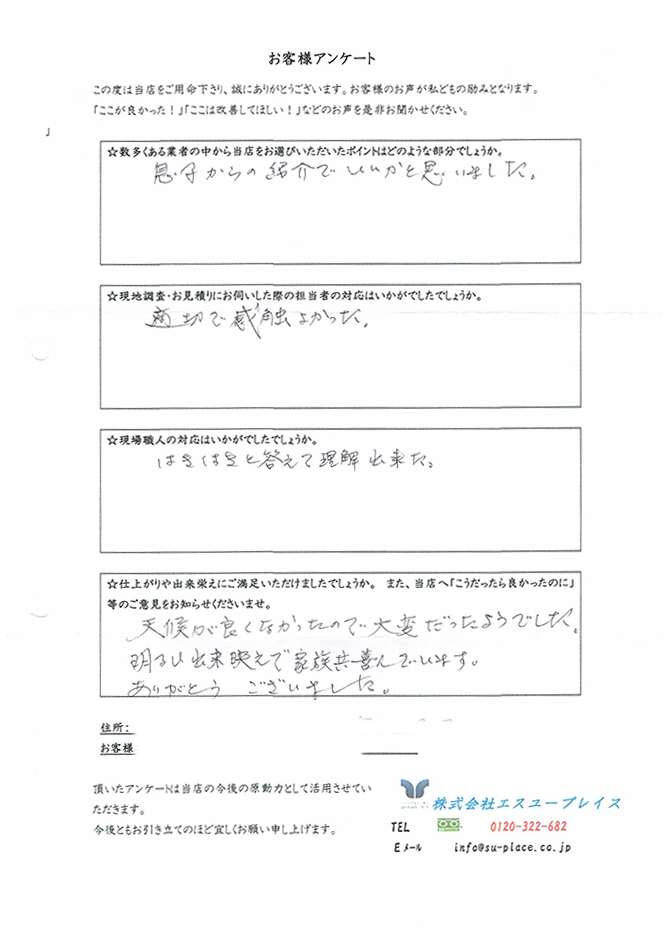 お客様アンケート
この度は当店をご用命下さり、誠にありがとうございます。お客様のお声が私どもの励みとなります。
「ここが良かった！」「ここは改善してほしい！」などのお声を是非お聞かせください。
」
☆数多くある業者の中から当店をお選びいただいたポイントはどのような部分でしょうか。
息子からの紹介でいいかと思いました。
☆現地調査・お見積りにお伺いした際の担当者の対応はいかがでしたでしょうか。
適切で感触よかった。
☆現場職人の対応はいかがでしたでしょうか。
はきはきと答えて理解出来た。
☆仕上がりや出来栄えにご満足いただけましたでしょうか。 また、当店へ「こうだったら良かったのに」
等のご意見をお知らせくださいませ。
天候が良くなかったので大変だったようでした。
明るい出来映えで家族共喜んでいます。
ありがとう ございました。
住所：
お客様
頂いたアンケートは当店の今後の原動力として活用させてい
ただきます。
今後ともお引き立てのほど宜しくお願い申し上げます。
株式会社エスユープレイス
TEL 0120-322-682
Eメール info@su-place.co.jp